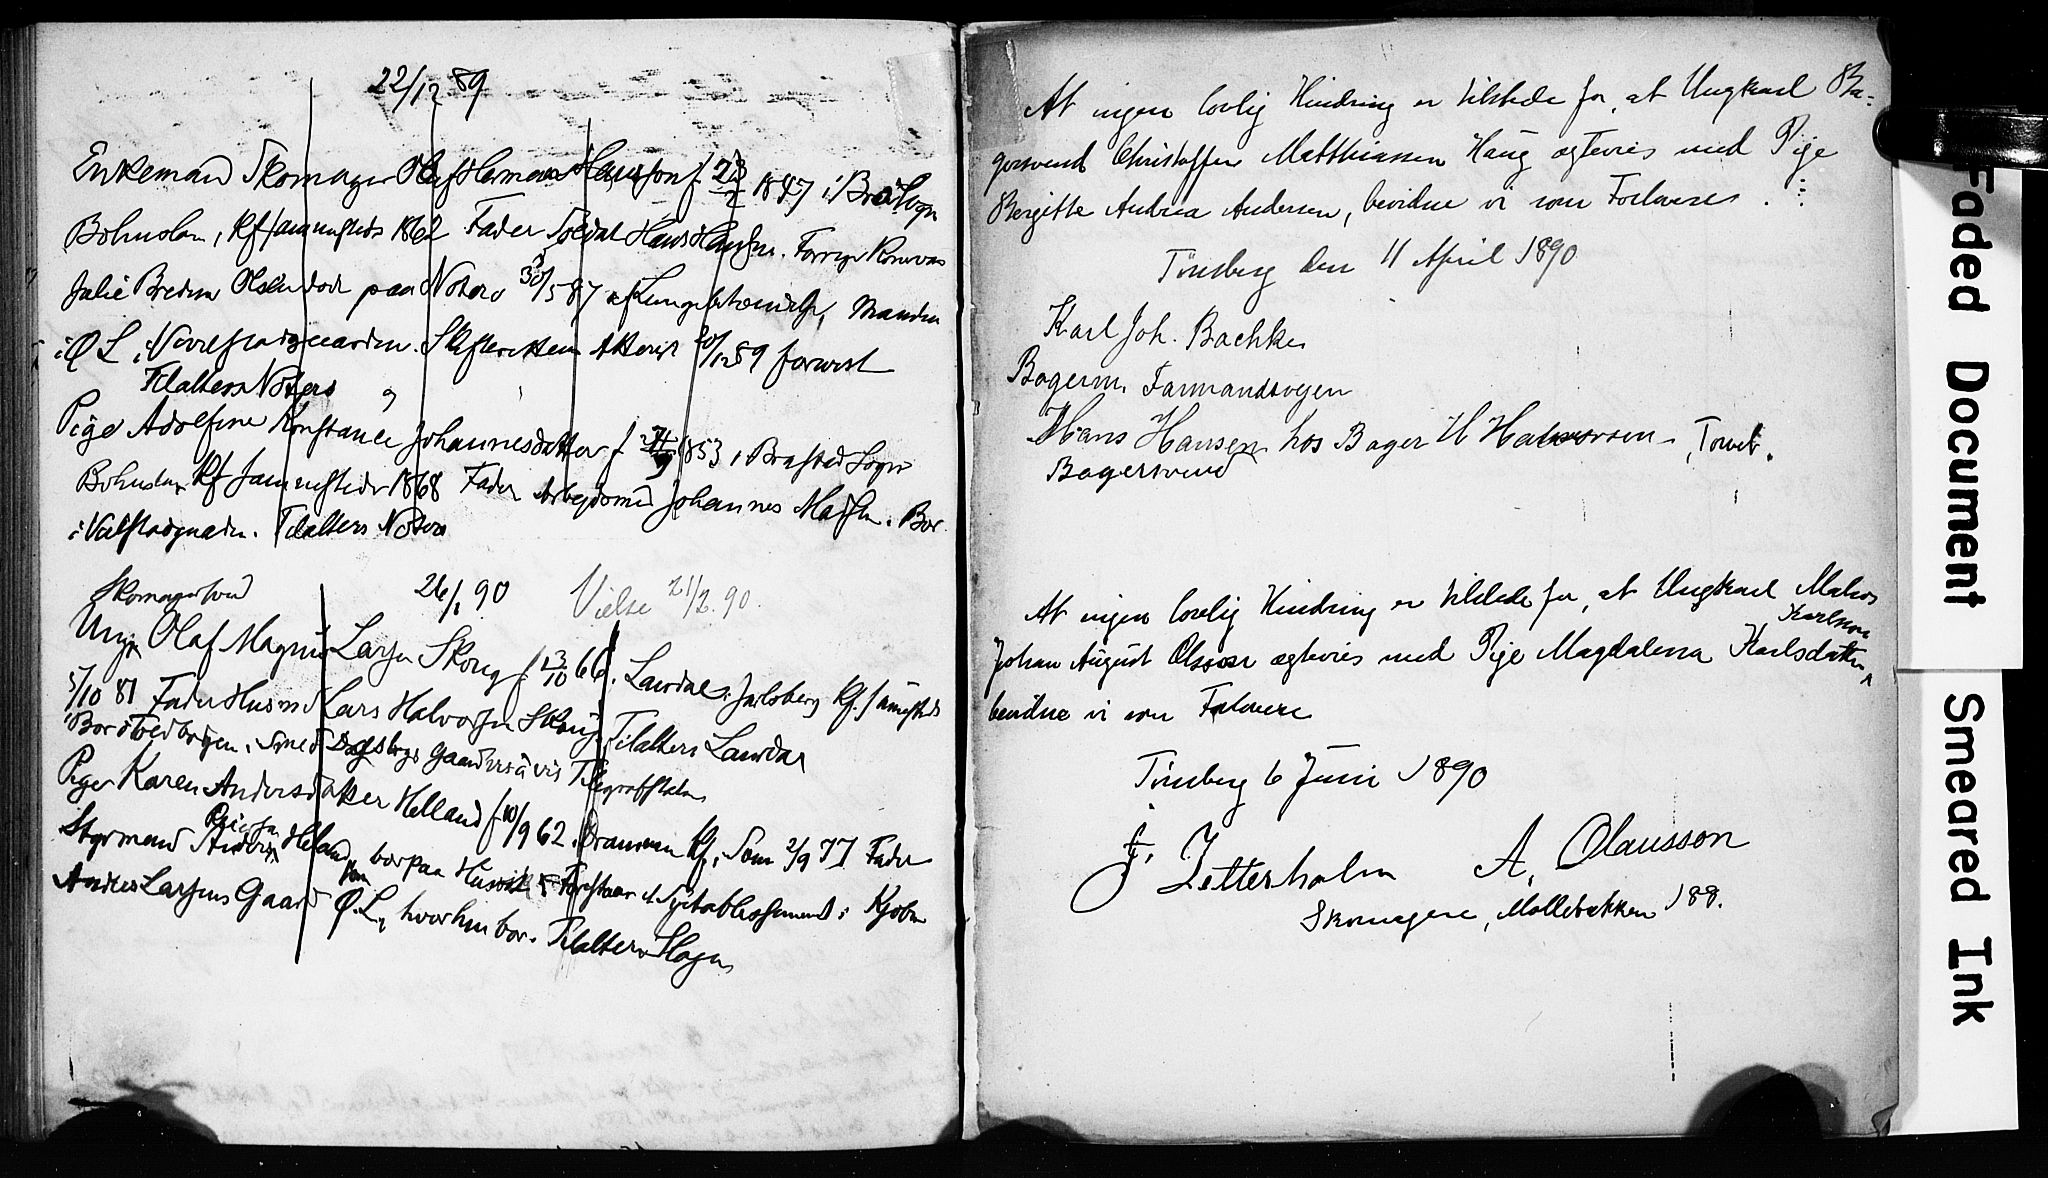 22/12 89
Enkemand Skomager Olaf Herman Hansson f 23/2 1847 i Bro Sogn
Bohuslen, Kf sammesteds 1862 Fader Soldat Hans Hansen. Forrige Kone var
Julie Olsen død paa Notero 30/5 87 af Lungebetændelse, Manden
i Q L, Skifteretten Attest 20/12 89 forevist
Tilalters Notero
Pige Adolfine Konstance Johannesdatter f 24/9 1853 i Brastad Sogn
Bohuslen Kf sammesteds 1868 Fader Arbejdsmd Johannes Bor
i Tilalters Notero
Skomagersvend
26/1 90 Vielse 21/2.90.
Ungk Olaf Magnus Larsen Skoug f 13/10 66. Laurdal i Jarlsberg Kf. sammesteds
5/10 81 Fader Husmd Lars Halvorsen Skoug, Tilalters Laurdal
Bor i Smed Gaard vis a vis Telegrafstalen
Pige Karen Andersdatter Helland f 10/9 62. Drammen Kf. i Sem 2/9 77 Fader
Styrmand Anders Reiersen Helland, bor paa Husvik Forestaar et Syetablissement i Kjøbm
Anders Larsens Gaard paa Q.L, hvor hun bor. Tilalters Slagen
At ingen lovlig Hindring er tilstede for, at Ungkarl Ba-
gersvend Christoffer Matthiassen Haug ægtevies med Pige
Bergitte Andrea Andersen, bevidne vi som Forlovere.
Tønsberg den 11 April 1890
Karl Joh. Bachke
Bagerm. Farmandsvejen
Hans Hansen hos Bager H Halvorsen, Torvet.
Bagersvend
At ingen lovlig Hindring er tilstede for, at Ungkarl
Karlsson
Johan August Olsson ægtevies med Pige Magdalena Karlsdatter
bevidne vi som Forlovere
Tønsberg 6 Juni 1890
J. Zetterholm A. Olausson
Skomagere, Møllebakken 188.
Faded Document
Smeared Ink